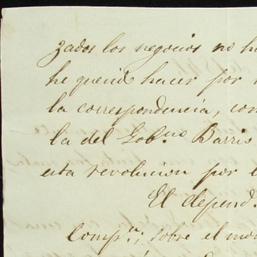 zados los negocios no hu
he querid hacer por m
la correspondencia, con
la del Gob.no Barris
esta revolucion por e
El depend.
Comp.n; sobre el mo